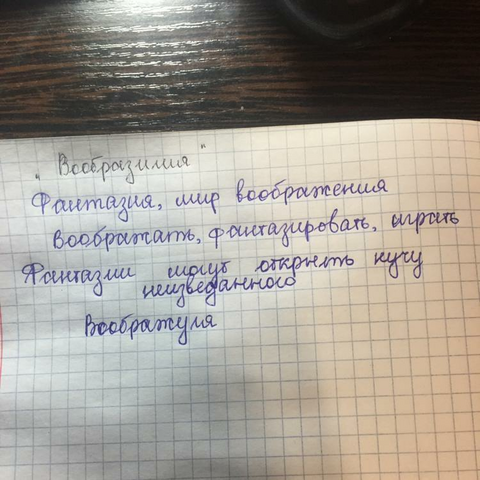 "Вообразилия"
Фантазия, мир воображения
Воображать, фантазировать, играть
Фантазии могут открыть кучу
неизведанного
Воображуля